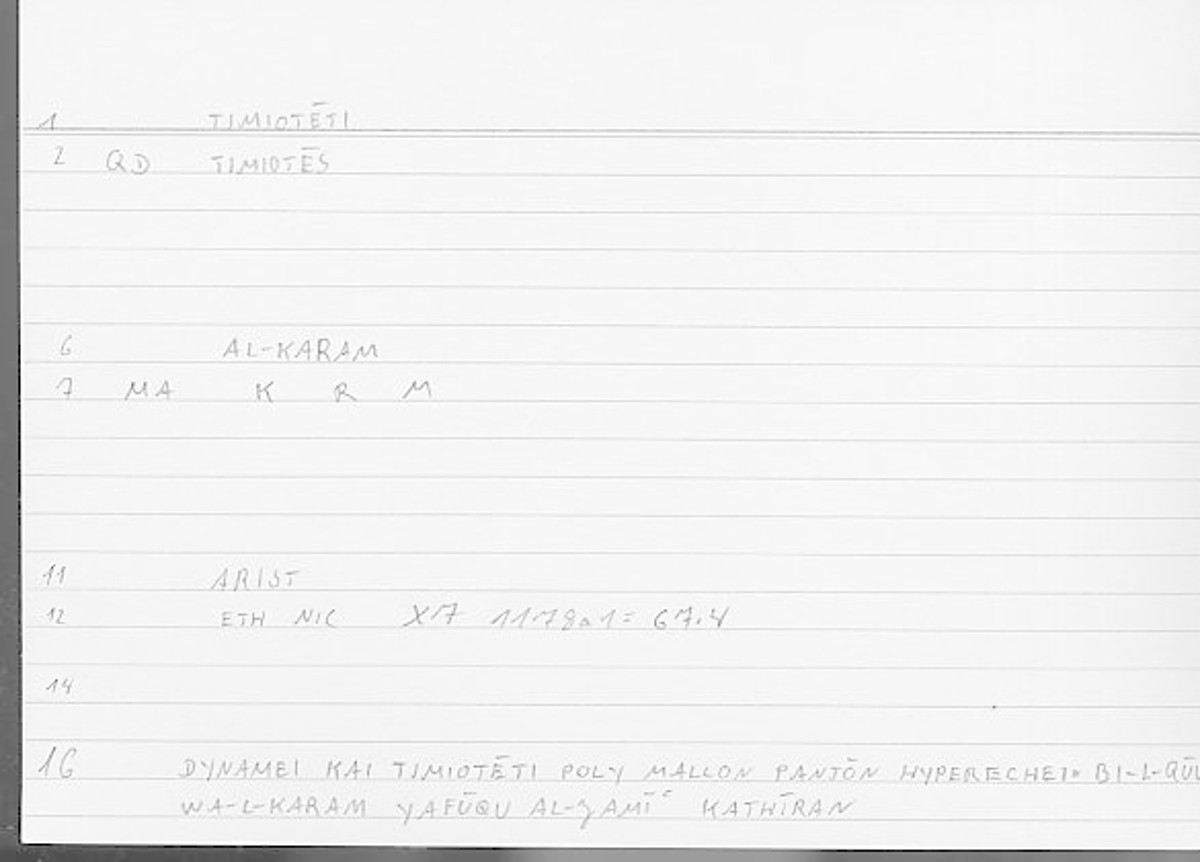 1 TIMIOTĒTI
2 QD TIMIOTĒS
6 AL-KARAM
7 MA K R M
11 ARIST
12 ETH NIC X7 1178a1= 67.4
14
16 DYNAMEI KAI TIMIOTĒTI POLY MALLON PANTŌN HYPERECHEI=BI-L-QŪW
WA-L-KARAM YAFŪQU AL-ǦAMĪʿ KATHĪRAN